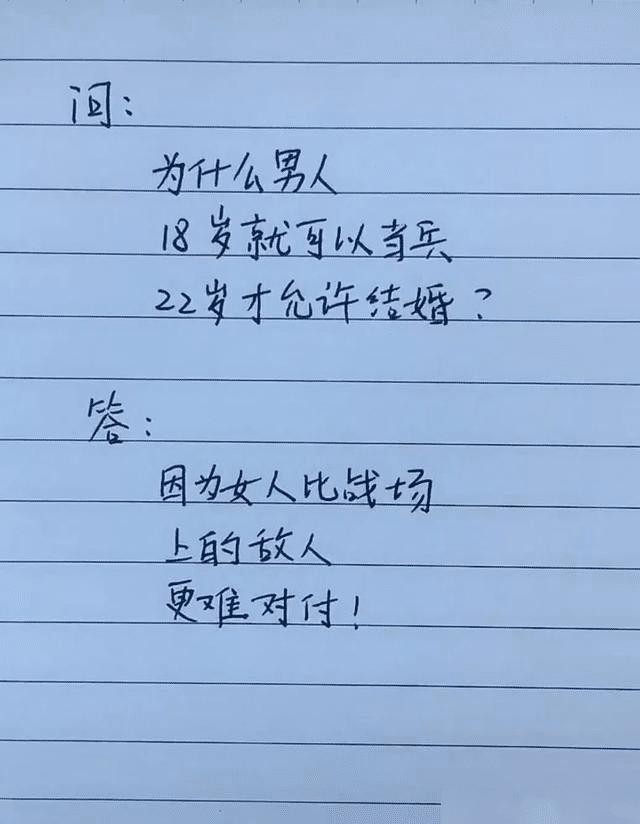 问：
为什么男人
18岁就可以当兵
22岁才允许结婚？
答：
因为女人比战场
上的敌人
更难对付！